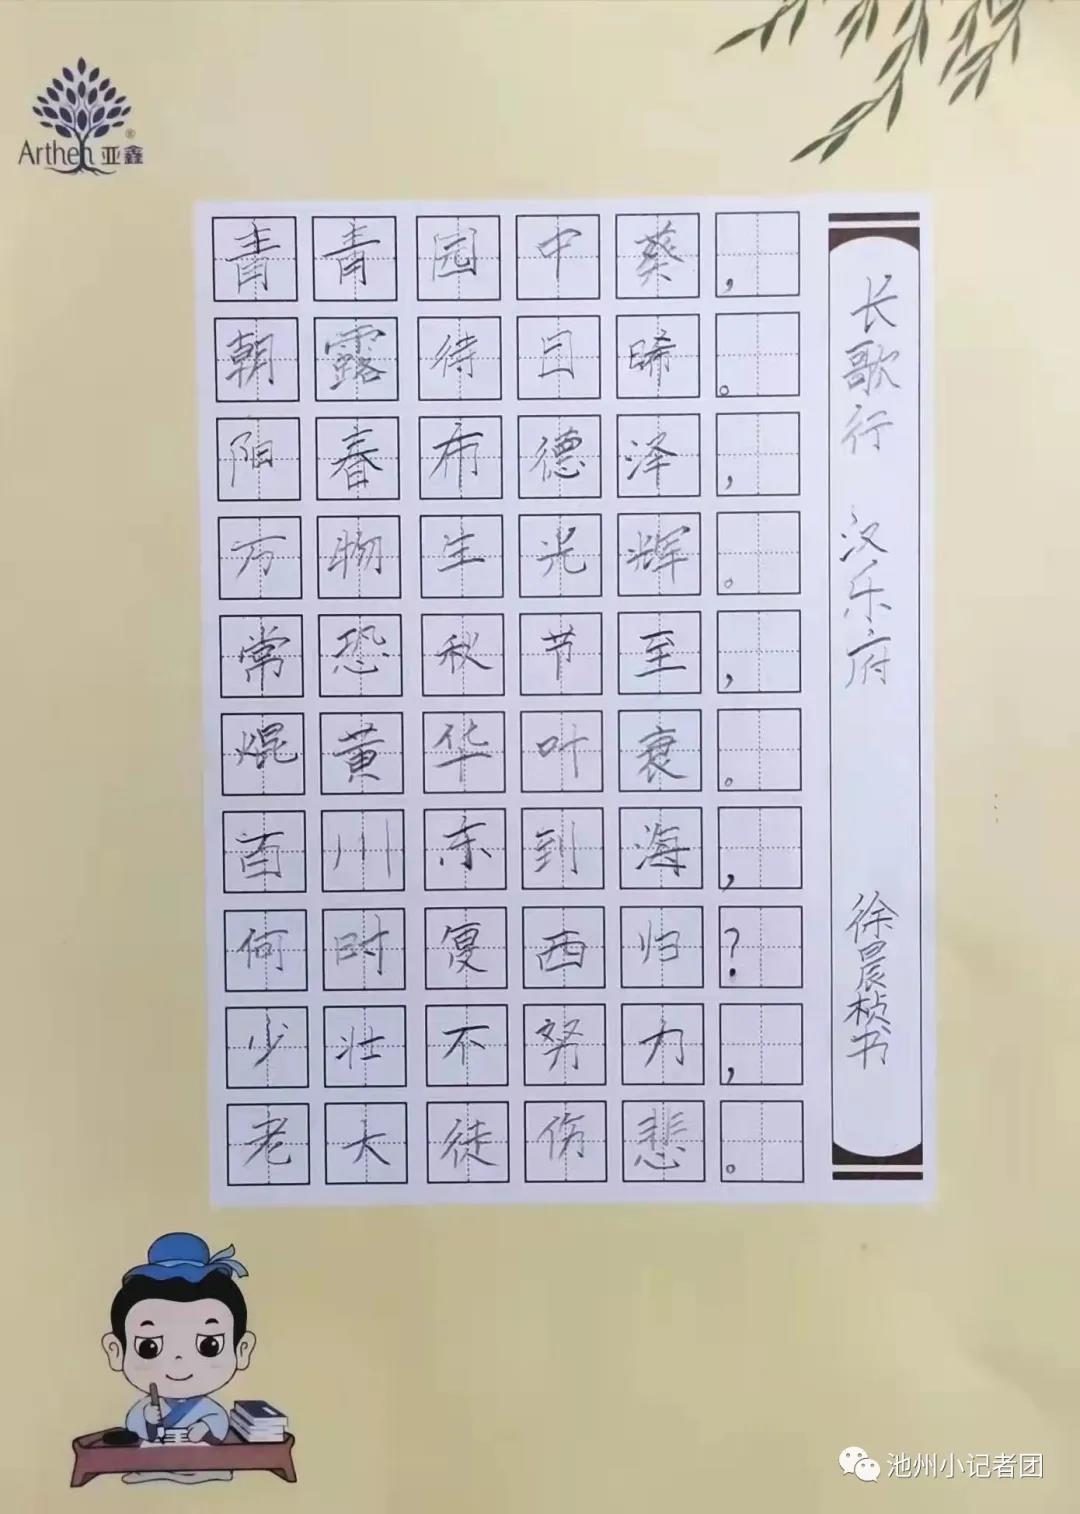 Arthen亚鑫®
青青园中葵，
朝露待日晞。
阳春布德泽，
万物生光辉。
常恐秋节至，
焜黄华叶衰。
百川东到海，
何时复西归？
少壮不努力，
老大徒伤悲。
长歌行 汉乐府
徐晨桢书
池州小记者团